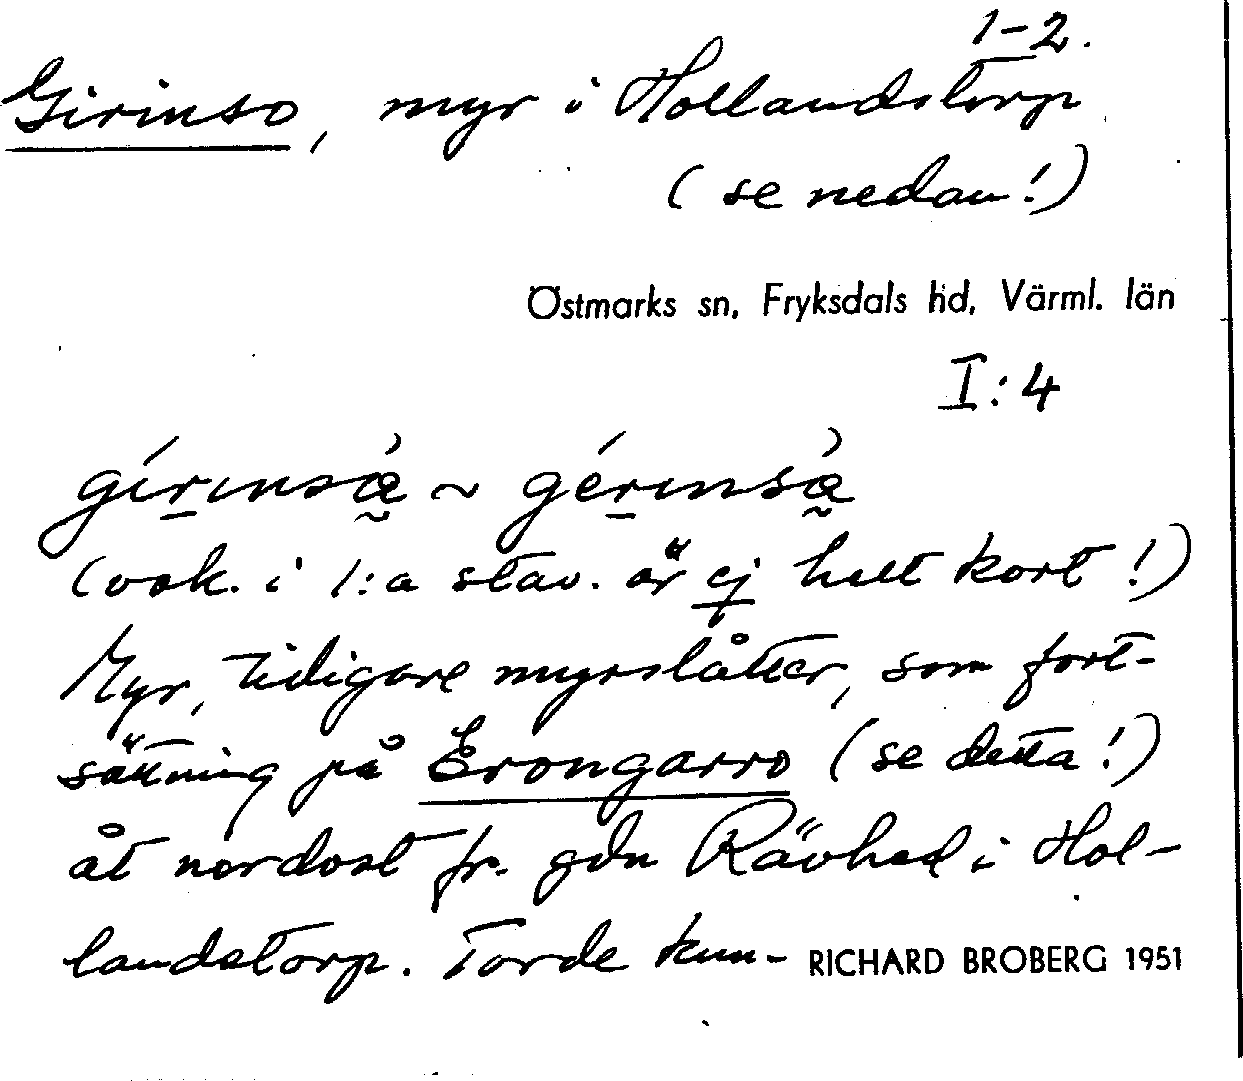 1-2.
Girinso, myr i Hollandstorp
(se nedan!)
Östmarks sn, Fryksdals hd, Värml. län
I:4
(vok. i 1:a stav. är ej helt kort!)
Myr, tidigare myrslåtter, som fort-
sättning på Erongarro (se detta!)
åt nordost fr. gdn Rävhed i Hol-
landstorp. Torde kun- RICHARD BROBERG 1951